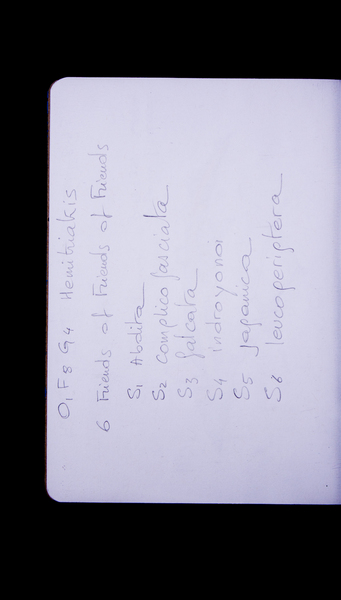 O1 F8 G4 Hemitriakis
6 Friends of Friends of Friends
S1 Abdita
S2 complicofasciata
S3 falcata
S4 indroyonoi
S5 japanica
S6 leucoperiptera